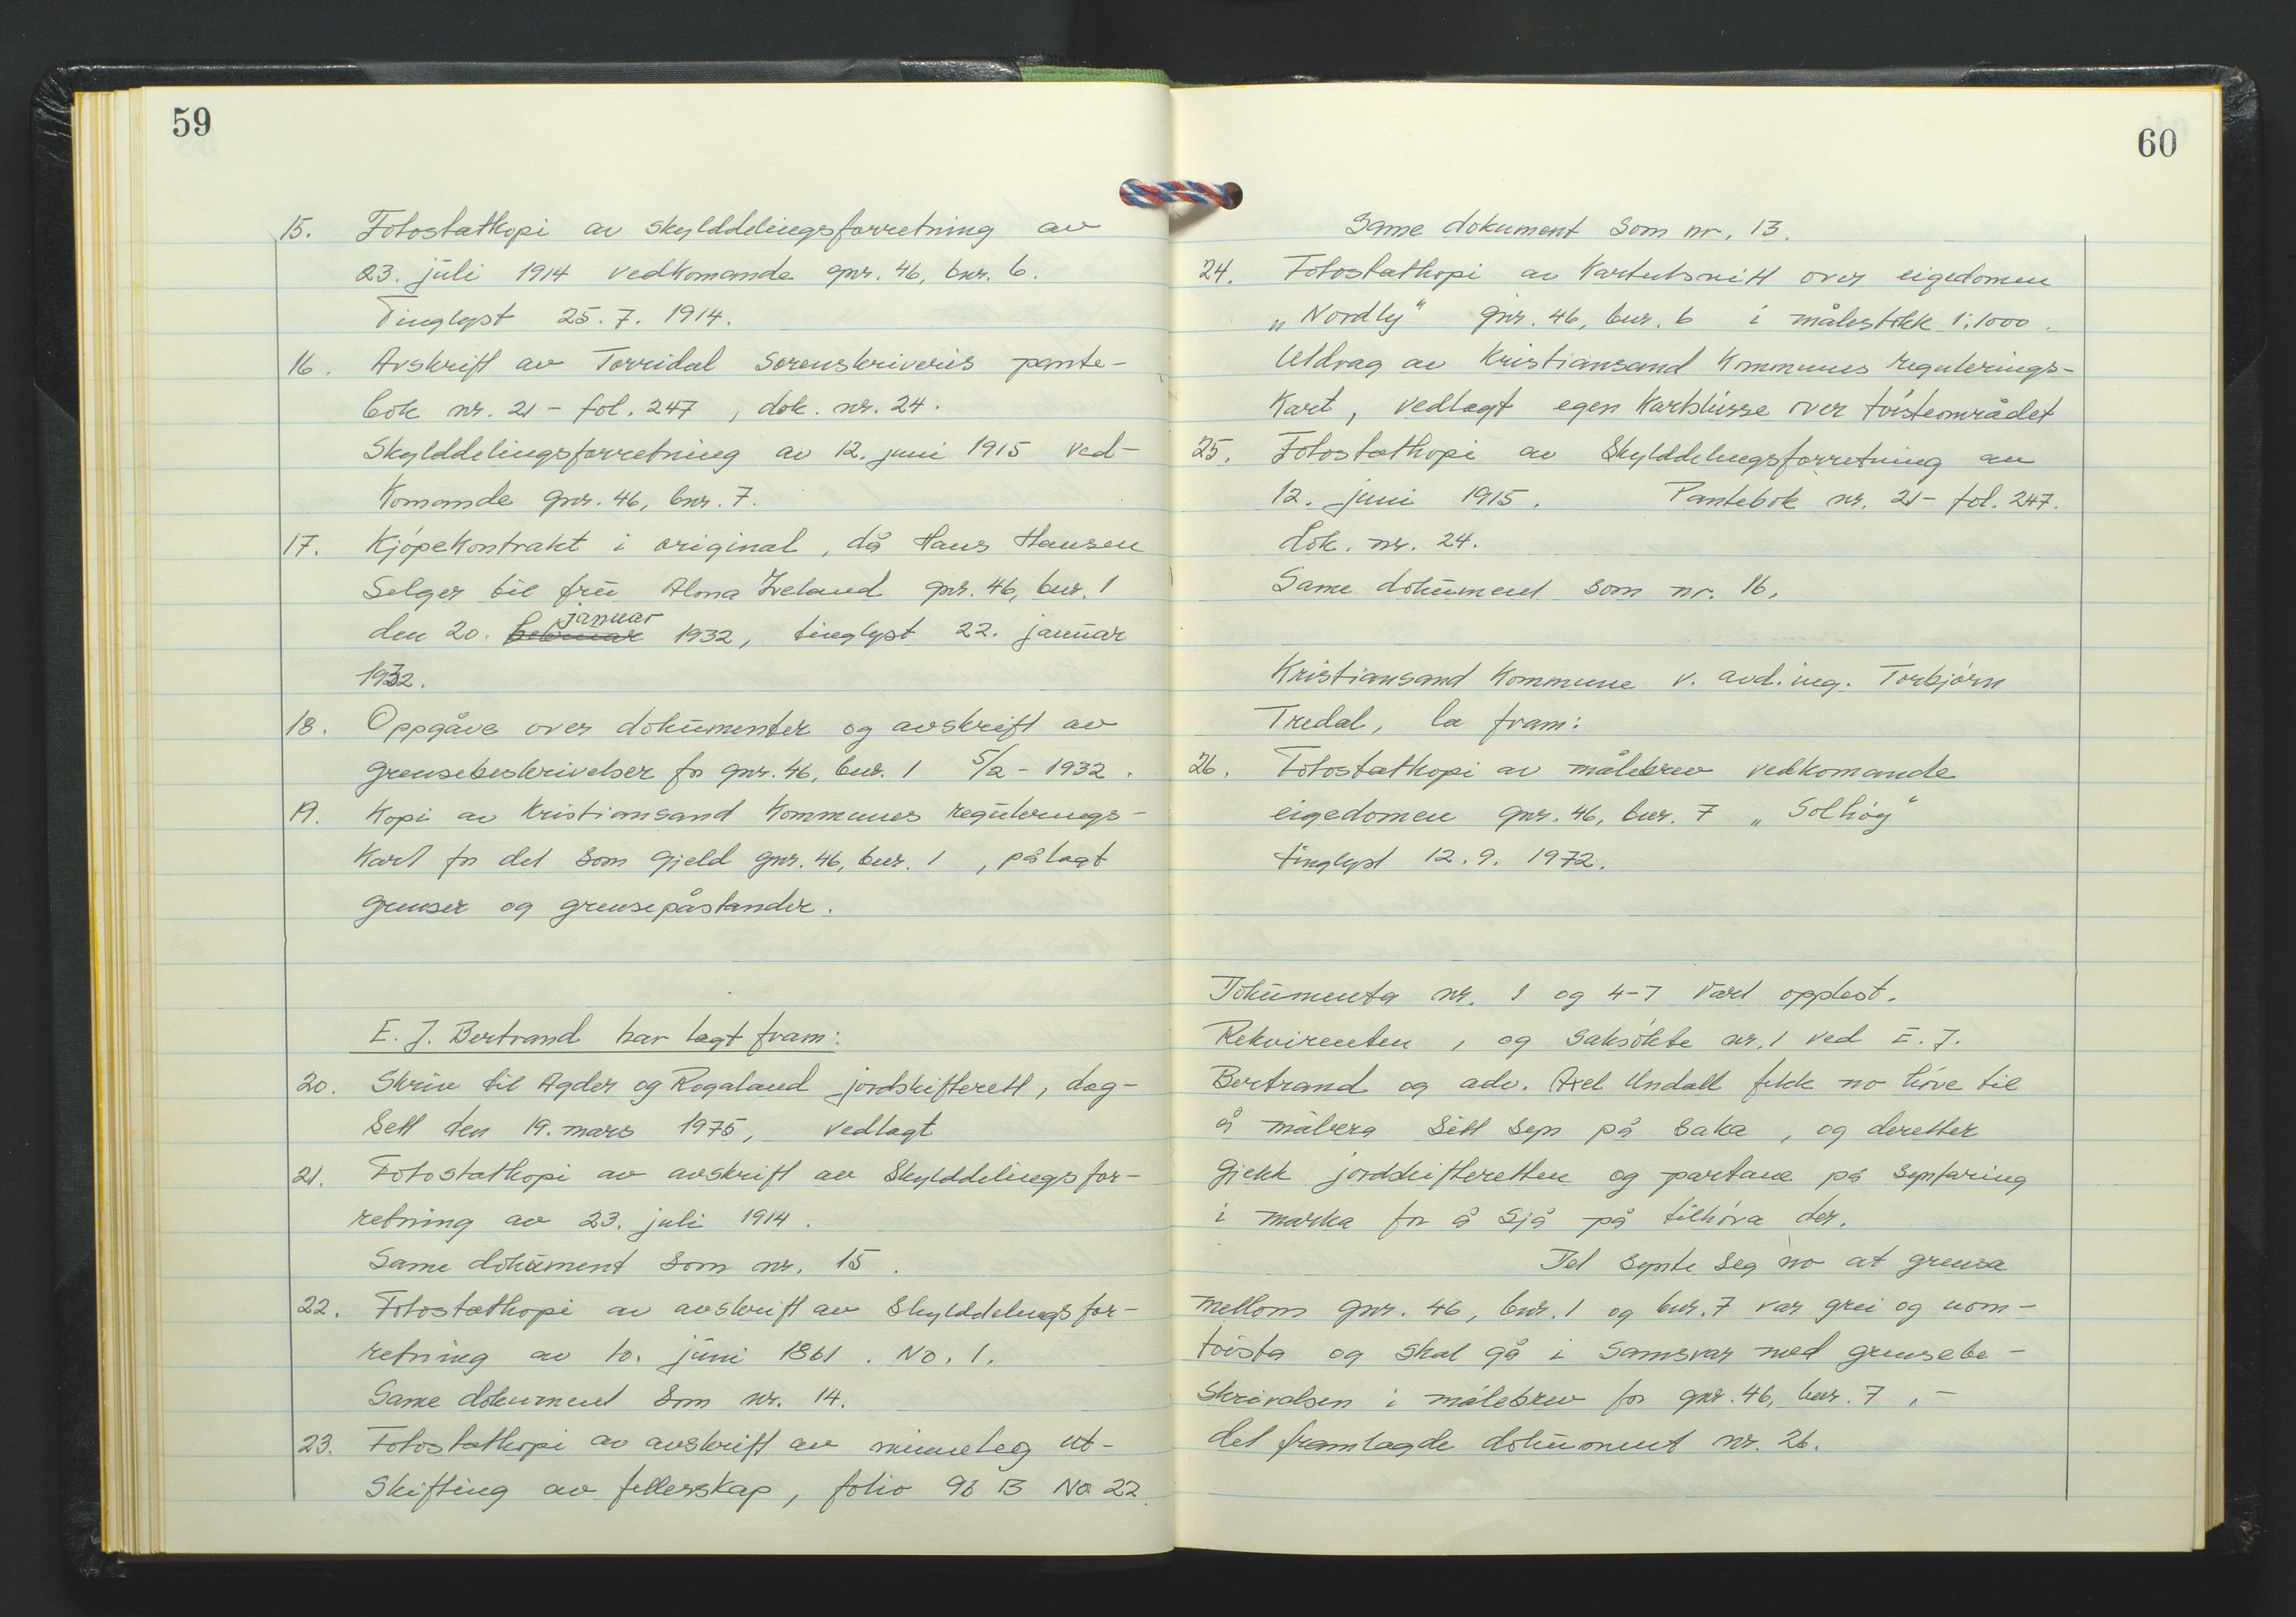 59
15. Fotostatkopi av skylddelingsforretning av
23. juli 1914 vedkomande gnr. 46, bnr. 6.
Tinglyst 25.7.1914.
16. Avskrift av Torridal Sorenskriveris pante-
bok nr. 21 - fol. 247, dok. nr. 24.
Skylddelingsforretning av 12. juni 1915 ved-
komande gnr. 46, bnr. 7.
17. Kjøpekontrakt i original, då Hans Hansen
Selger til frü Alma Iveland gnr. 46, bnr. 1
januar
den 20. februar 1932, tinglyst 22. januar
1932.
18. Oppgåve over dokumenter og avskrift av
grensebeskrivelser for gnr. 46, bnr. 1 5/2 - 1932.
19. Kopi av Kristiansand Kommunes regulerings-
kart for det som gjeld gnr. 46, bnr. 1, pålagt
grenser og grensepåstander.
E. J. Bertrand har lagt fram:
20. Skriv til Agder og Rogaland jordskifterett, dag-
sett den 19. mars 1975, vedlagt
21. Fotostatkopi av avskrift av Skylddelingsfor-
retning av 23. juli 1914.
Same dokument som nr. 15.
22. Fotostatkopi av avskrift av Skylddelingsfor-
retning av 10. juni 1861. No. 1.
Same dokument som nr. 14.
23. Fotostatkopi av avskrift av minneleg ut-
skifting av fellerskap, folio 96 B No 22.
60
Same dokument som nr. 13.
24. Fotostatkopi av Kartutsnitt over eigedomen
„Nordly" gnr. 46, bnr. 6 i målestokk 1:1000.
Utdrag av Kristiansand Kommunes regulerings-
kart, vedlagt egen kartskisse over tvisteområdet
25. Fotostatkopi av Skylddelingsforretning av
12. juni 1915. Pantebok nr. 21 - fol. 247.
dok. nr. 24.
Same dokument som nr. 16.
Kristiansand Kommune v. avd.ing. Torbjørn
Tredal, la fram:
26. Fotostatkopi av målebrev vedkomande
eigedomen gnr. 46, bnr. 7 „Solhøg"
tinglyst 12.9.1972.
Dokumenta nr. 1 og 4-7 vart opplest.
Rekvirenten, og saksøkte nr. 1 ved E. J.
Bertrand og adv. Axel Undall fekk no høve til
å målbera sitt syn på saka, og deretter
gjekk jordskifteretten og partane på synfaring
i marka for å sjå på tilhøva der.
Det synte seg no at grensa
mellom gnr. 46, bnr. 1 og bnr. 7 var grei og uom-
tvista og skal gå i samsvar med grensebe-
skrivelsen i målebrev for gnr. 46, bnr. 7, -
det framlagde dokument nr. 26.